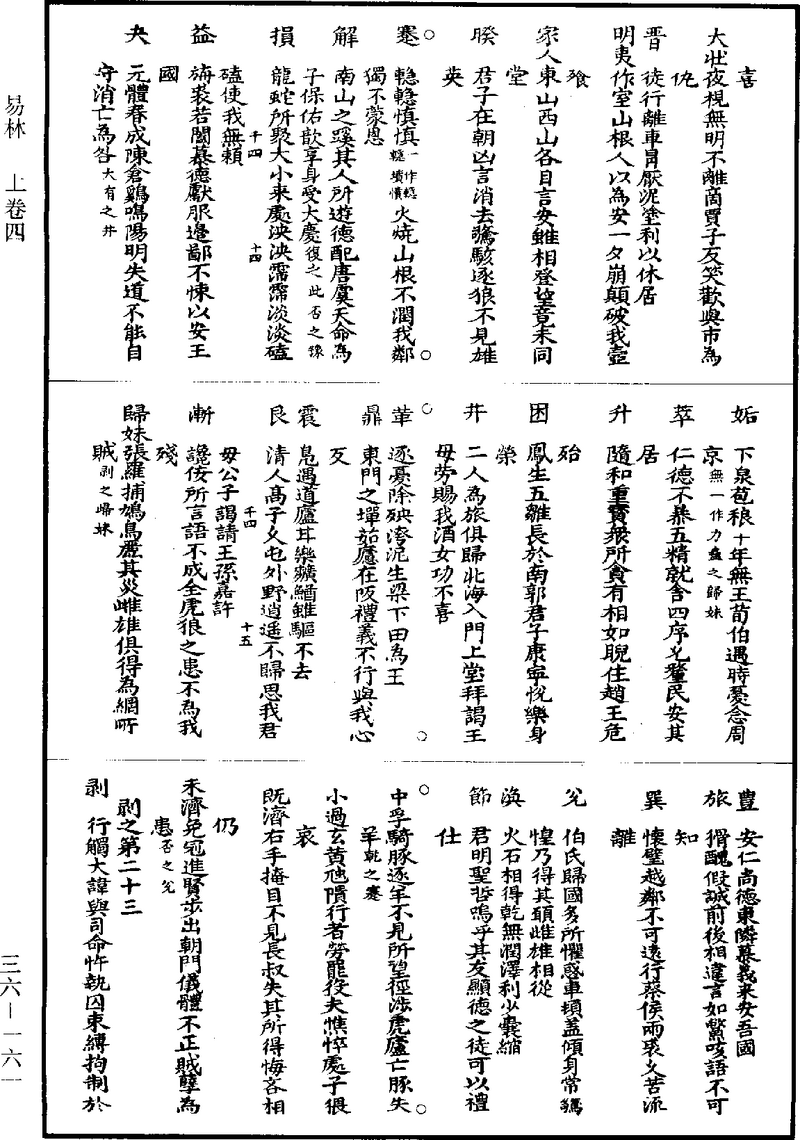 易林　上卷四
三六—一六一
喜
大壯夜視無明不離箇賈子友笑歡與市為
仇
晉　徒行離車冒厭泥塗利以休居
明夷作室山根人以為安一夕崩顛破我壺
飱
家人東山西山各自言安雖相登望竟未同
堂
睽　君子在朝凶言消去驚駭逐狼不見雄
英
蹇　轗轗慎慎一作轗轗㥄㥄火燒山根不潤我鄰
獨不蒙恩
解　南山之蹊其人所遊德配唐虞天命為
子保佑歆享身受大慶復之此否之豫
損　龍蛇所聚大小來處泱泱霈霈淡淡磕
磕使我無賴
益　旃裘若闔慕德獻服邊鄙不悚以安王
國
夬　元體春成陳倉雞鳴陽明失道不能自
守消亡為咎大有之井
姤　下泉苞稂十年無王荀伯遇時憂念周
京無一作力蠱之歸妹
萃　仁德不暴五精就舍四序允釐民安其
居
升　隨和重寶眾所貪有相如睨住趙王危
殆
困　鳳生五雛長於南郭君子康寧悅樂身
榮
井　二人為旅俱歸北海入門上堂拜謁王
母勞賜我酒女功不喜
革　逐憂除殃潦泥生梁下田為王
鼎　東門之墠茹藘在阪禮義不行與我心
反
震　鳧遇道廬耳樂𪍿䲡雖驅不去
艮　清人高子久屯外野逍遙不歸思我君
母公子謁請王孫嘉許
漸　讒佞所言語不成全虎狼之患不為我
殘
歸妹張羅捕鳩鳥麗其災雌雄俱得為網所
賊剝之歸妹
豐　安仁尚德東隣慕義來安吾國
旅　猾醜假誠前後相違言如鱉咳語不可
知
巽　懷璧越鄰不可遠行蔡侯兩裘久苦流
離
兌　伯氏歸國多所懼惑車頃蓋傾身常驚
惶乃得其頚雌雄相從
渙　火石相得乾無潤澤利少囊縮
節　君明聖哲嗚乎其友顯德之徒可以禮
仕
中孚騎豚逐羊不見所望徑涉虎廬亡豚失
羊乾之蹇
小過玄黃虺隤行者勞罷役夫憔悴處子畏
哀
既濟右手掩目不見長叔失其所得悔吝相
仍
未濟免冠進賢步出朝門儀體不正賊孽為
患否之兌
剝之第二十三
剝　行觸大諱與司命忤執囚束縛拘制於